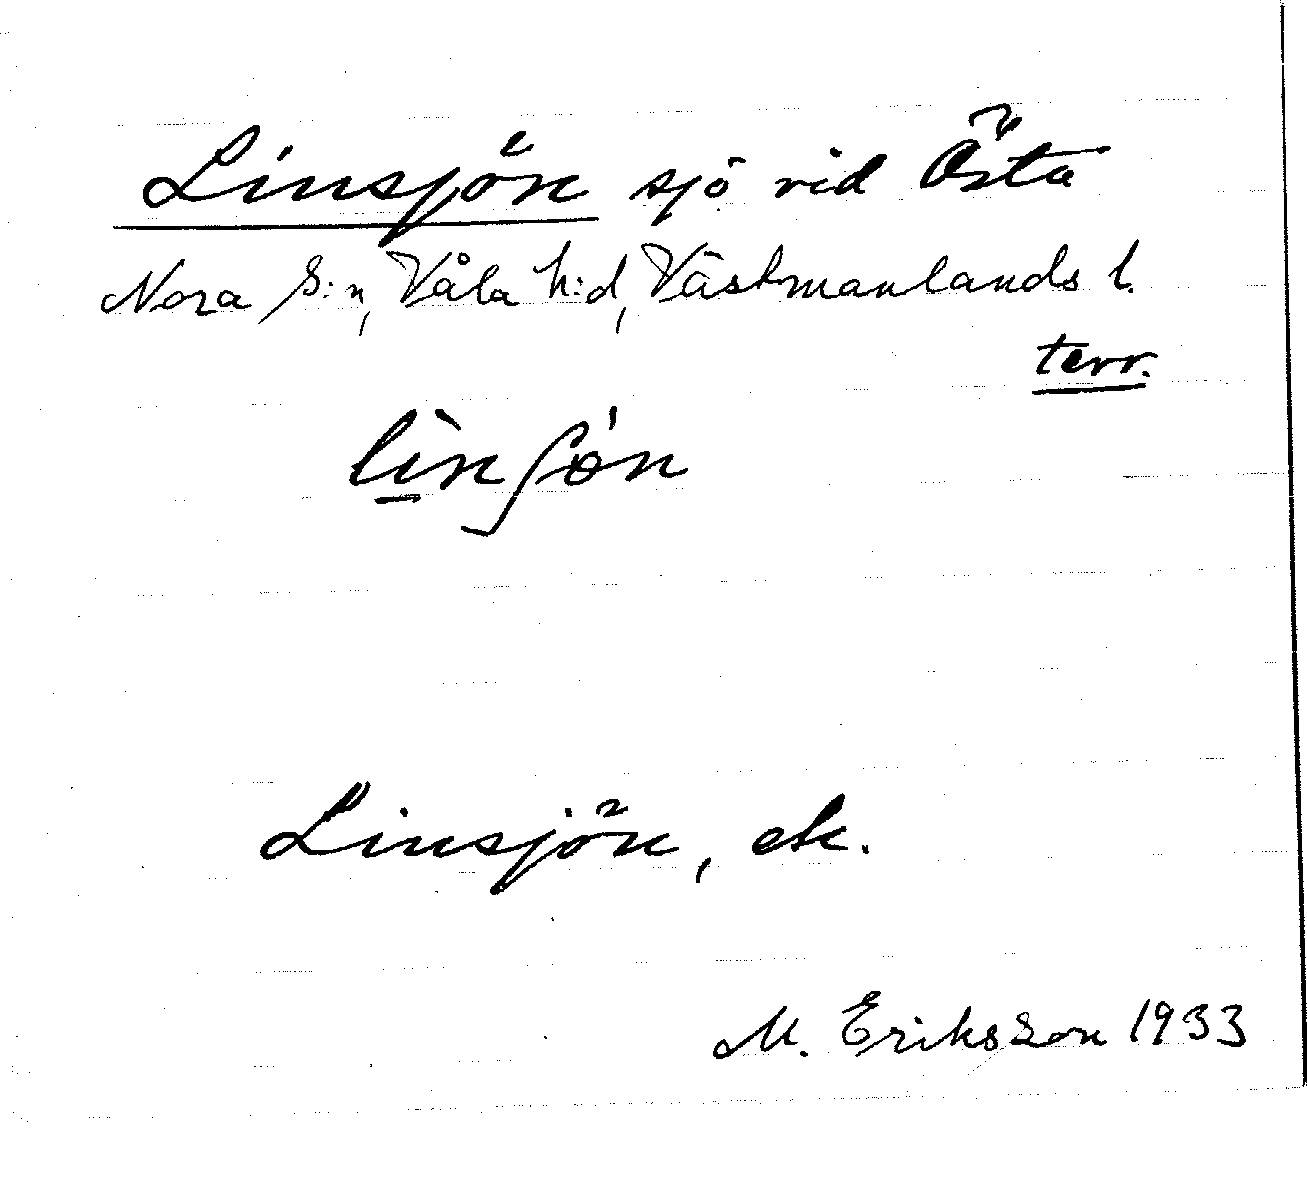 Linsjön sjö vid Östa
Nora s:n, Våla h:d, Västmanlands l.
terr.
lìnʃön
Linsjön, ek.
M. Eriksson 1933